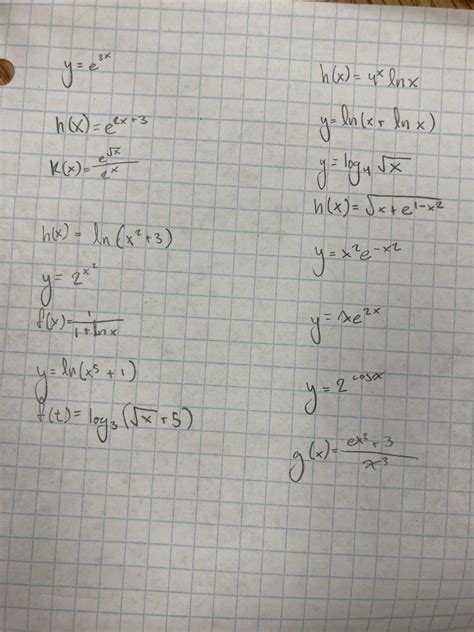 y = e^{3x}
h(x) = e^{2x+3}
k(x) = e^{√x} / e^x
h(x) = ln(x²+3)
y = 2^{x²}
f(x) = 1 / 1+lnx
y = ln(x⁵+1)
f(t) = log₃(√x+5)
h(x) = 4^x lnx
y = ln(x+lnx)
y = log₄√x
h(x) = √x+e^{1-x²}
y = x²e^{-x²}
y = xe^{2x}
y = 2^{cosx}
g(x) = ex³+3 / x³